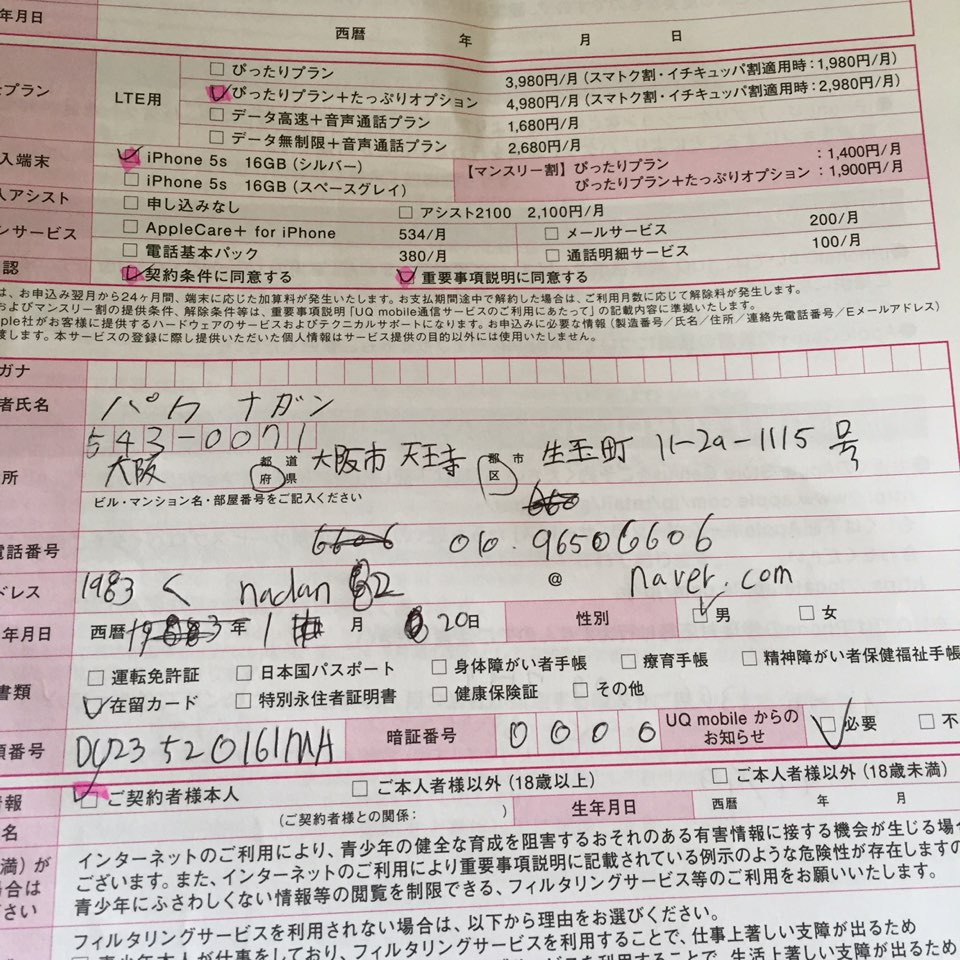 年月日 西暦 年 月 日
プラン LTE用 ぴったりプラン 3,980円/月(スマトク割・イチキュッパ割適用時:1,980円/月)
ぴったりプラン+たっぷりオプション 4,980円/月(スマトク割・イチキュッパ割適用時:2,980円/月)
データ高速+音声通話プラン 1,680円/月
データ無制限+音声通話プラン 2,680円/月
入端末 iPhone 5s 16GB(シルバー) 【マンスリー割】ぴったりプラン :1,400円/月
iPhone 5s 16GB(スペースグレイ) ぴったりプラン+たっぷりオプション :1,900円/月
アシスト 申し込みなし アシスト2100 2,100円/月
ンサービス AppleCare+ for iPhone 534/月 メールサービス 200/月
電話基本パック 380/月 通話明細サービス 100/月
認 契約条件に同意する 重要事項説明に同意する
は、お申込み翌月から24ヶ月間、端末に応じた加算料が発生いたします。お支払期間途中で解約した場合は、ご利用月数に応じて解除料が発生します。
およびマンスリー割の提供条件、解除条件等は、重要事項説明「UQ mobile通信サービスのご利用にあたって」の記載内容に準拠いたします。
ple社がお客様に提供するハードウェアのサービスおよびテクニカルサポートになります。お申込みに必要な情報(製造番号/氏名/住所/連絡先電話番号/Eメールアドレス)
渡します。本サービスの登録に際し提供いただいた個人情報はサービス提供の目的以外には使用いたしません。
ガナ
者氏名 パク ナダン
543-0071
所 大阪 都道府県 大阪市 天王寺 郡市区 生玉町 11-2a-1115号
ビル・マンション名・部屋番号をご記入ください
電話番号 010.96506606
ドレス 1983 く nadan 82 @ naver.com
年月日 西暦 年 1 月 20日 性別 男 女
書類 運転免許証 日本国パスポート 身体障がい者手帳 療育手帳 精神障がい者保健福祉手帳
在留カード 特別永住者証明書 健康保険証 その他
番号 DU23520161MA 暗証番号 0000 UQ mobile からのお知らせ 必要 不
情報 ご契約者様本人 ご本人者様以外(18歳以上) ご本人者様以外(18歳未満)
名 (ご契約者様との関係: ) 生年月日 西暦 年 月
満)が インターネットのご利用により、青少年の健全な育成を阻害するおそれのある有害情報に接する機会が生じる場合
場合は ございます。また、インターネットのご利用により重要事項説明に記載されている例示のような危険性が存在しますの
ださい 青少年にふさわしくない情報等の閲覧を制限できる、フィルタリングサービス等のご利用をお願いいたします。
フィルタリングサービスを利用されない場合は、以下から理由をお選びください。
青少年本人が仕事をしており、フィルタリングサービスを利用することで、仕事上著しい支障が出るため
サービスを利用することで、生活上著しい支障が出るため